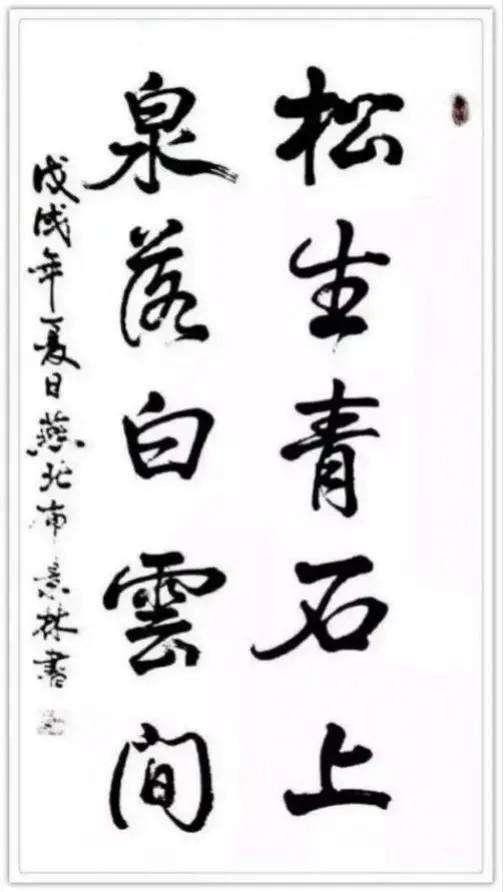 松生青石上
泉落白雲間
戊戌年夏日燕北布景林書